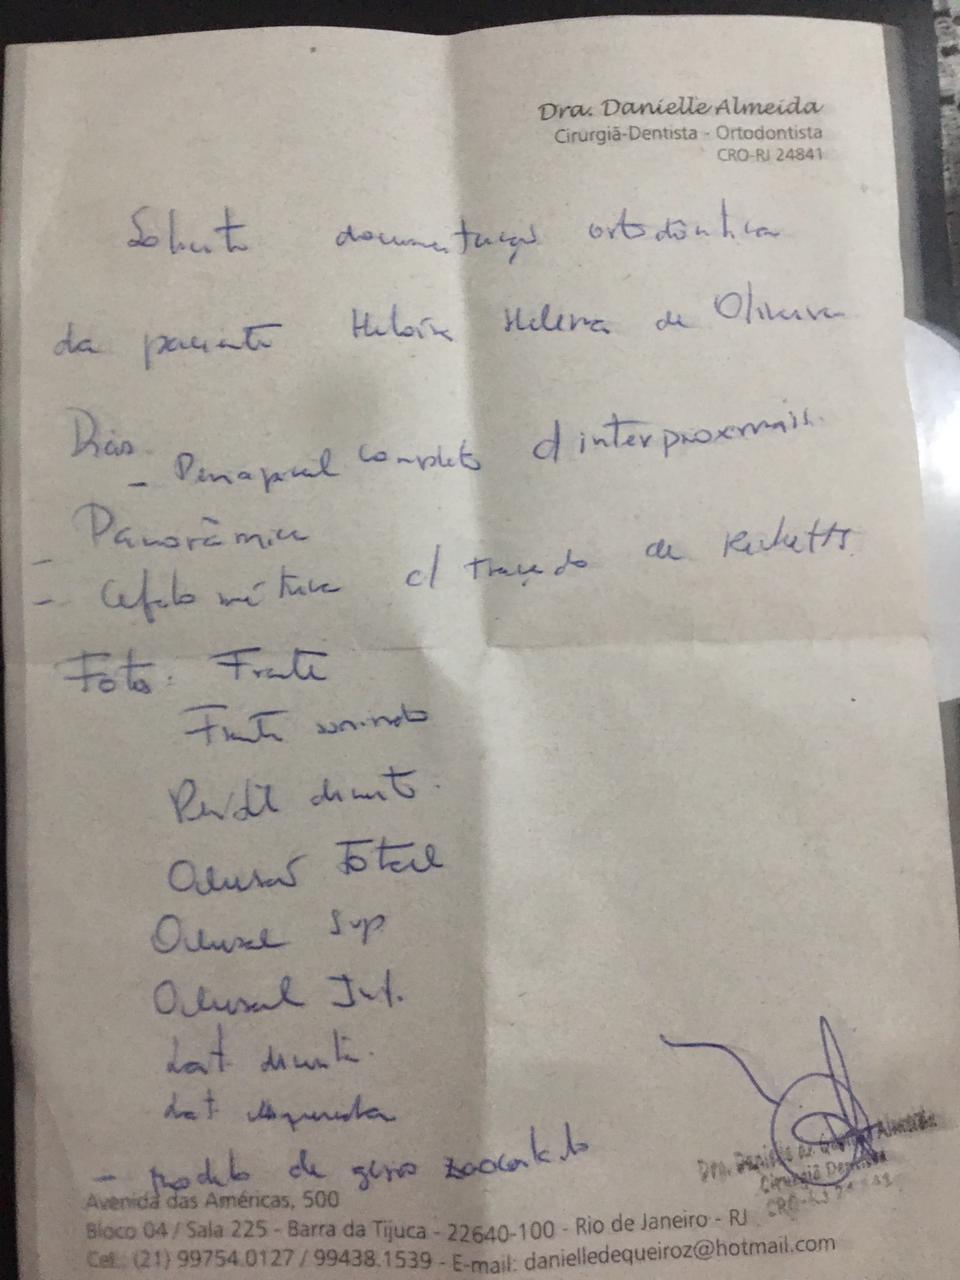 Dra. Danielle Almeida
Cirurgiã-Dentista - Ortodontista
CRO-RJ 24841
Solicito documentação ortodôntica
da paciente Heloísa Helena de Oliveira
- Periapical completo c/ interproximais.
- Panorâmica
- Cefalométrica c/ traçado de Ricketts
Fotos: Frente
Frente sorrindo
Perfil direito.
Oclusão Total
Oclusal Sup
Oclusal Inf.
Lat. direita.
Lat esquerda
- modelo de gesso
Dra. Danielle de Queiroz Almeida
Cirurgiã Dentista
CRO-RJ 24841
Avenida das Américas, 500
Bloco 04 / Sala 225 - Barra da Tijuca - 22640-100 - Rio de Janeiro - RJ
Cel.: (21) 99754.0127 / 99438.1539 - E-mail: danielledequeiroz@hotmail.com